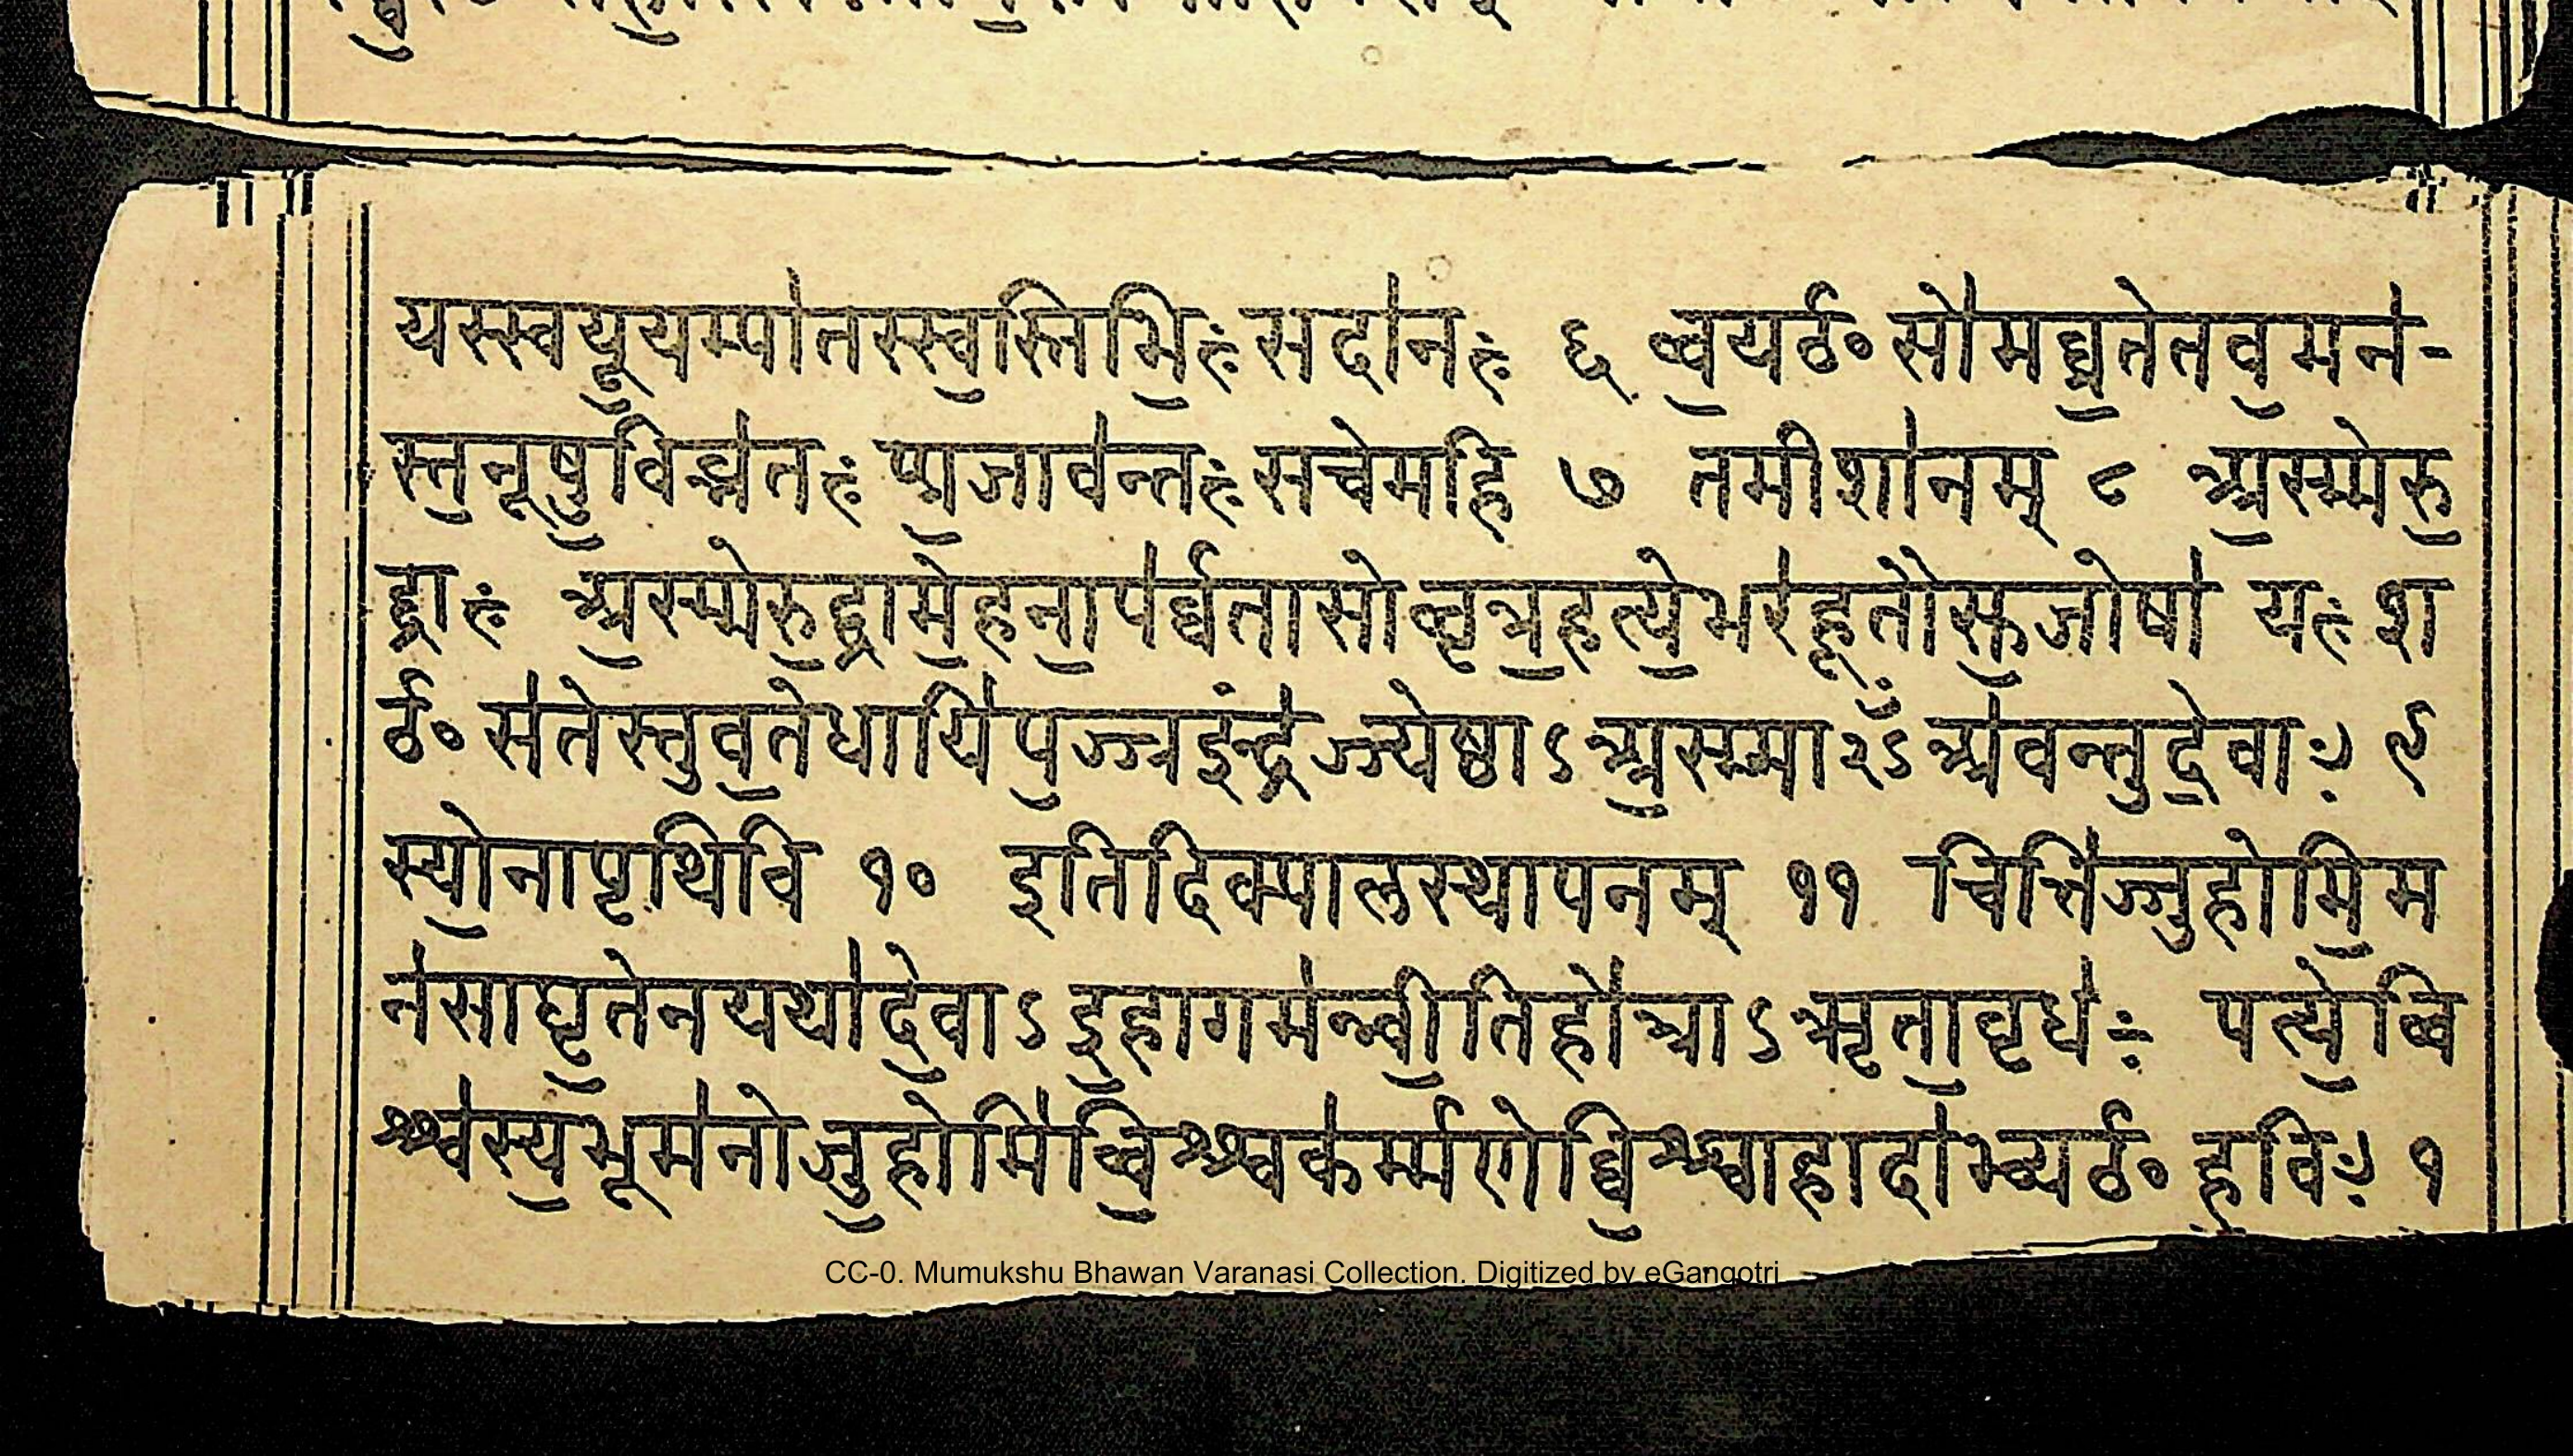 यस्स्वयू॒यम्पा॑तस्स्व॒स्तिभि॒ः सदा॑नः ६ व्व॒यर्ठ॰सो॑मव्व्र॒तेतव॒मन॑-
स्त॒नूषु॒बिब्भ्र॑तः प्र॒जाव॑न्तः सचेमहि ७ तमीशा॑नम् ८ अ॒स्म्मेरु॒
द्राः अ॒स्म्मेरु॒द्रामे॒हना॒पर्व्व॑तासोव्वृत्र॒हत्ये॒भर॑हूतौस॒जोषा॑ यः श
र्ठ॰स॑तेस्तुव॒तेधायि॑प॒ज्ज्रइन्द्र॑ज्ज्येष्ठाऽअ॒स्म्माँ२ऽअ॑वन्तुदे॒वाः ९
स्यो॒नापृथिवि १० इतिदिक्पालस्थापनम् ११ चित्तिं॑ज्जुहोमि॒म
न॑साघृ॒तेनयथा॑दे॒वाऽइ॒हागम॑न्न्वी॒तिहो॑त्राऽऋता॒वृध॑ः पत्ये॒व्वि
श्श्व॑स्य॒भूम॑नोजु॒होमि॑व्वि॒श्श्वक॑र्म्मणेव्वि॒श्श्वाहादा॑भ्यर्ठ॰ह॒विः १
CC-0. Mumukshu Bhawan Varanasi Collection. Digitized by eGangotri